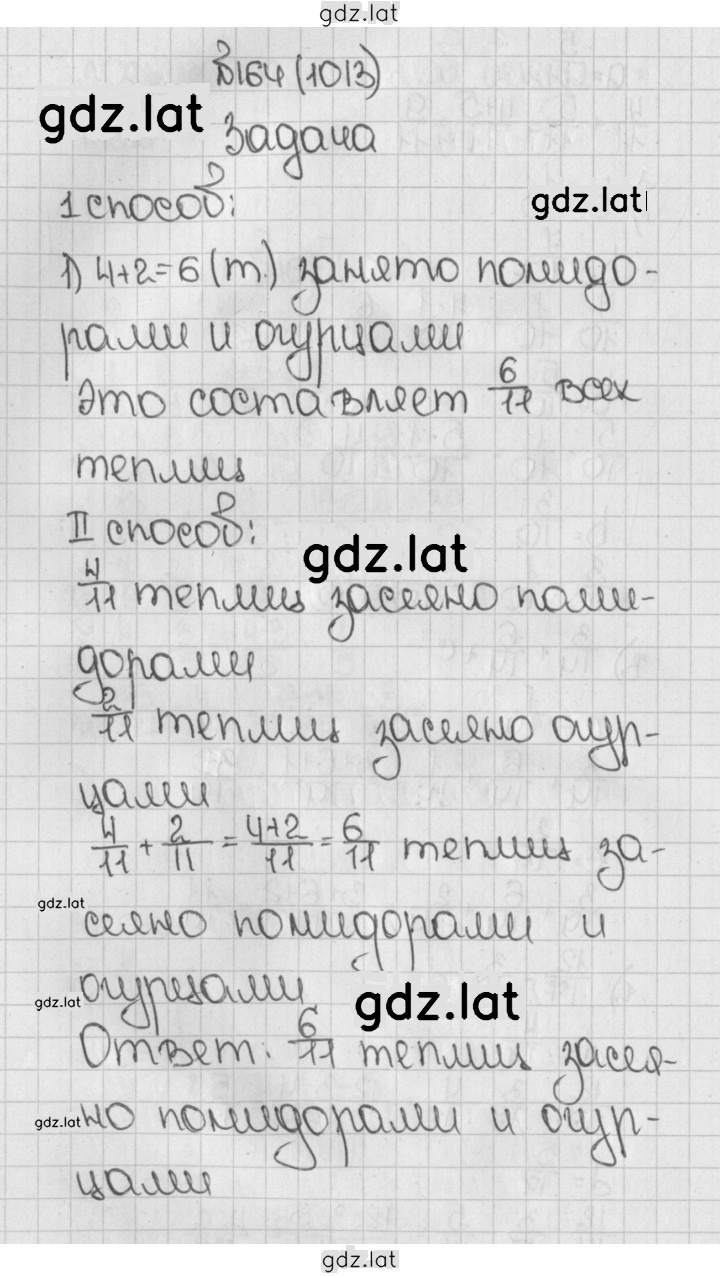 gdz.lat
№164 (1013)
gdz.lat
Задача
1 способ:
gdz.lat
1) 4+2=6 (т.) занято помидо-
рами и огурцами
Это составляет 6/11 всех
теплиц
II способ:
gdz.lat
4/11 теплиц засеяно поми-
дорами
2/11 теплиц засеяно огур-
цами
4/11 + 2/11 = 4+2/11 = 6/11 теплиц за-
gdz.lat
сеяно помидорами и
огурцами
gdz.lat
gdz.lat
Ответ: 6/11 теплиц засея-
gdz.lat
но помидорами и огур-
цами
gdz.lat